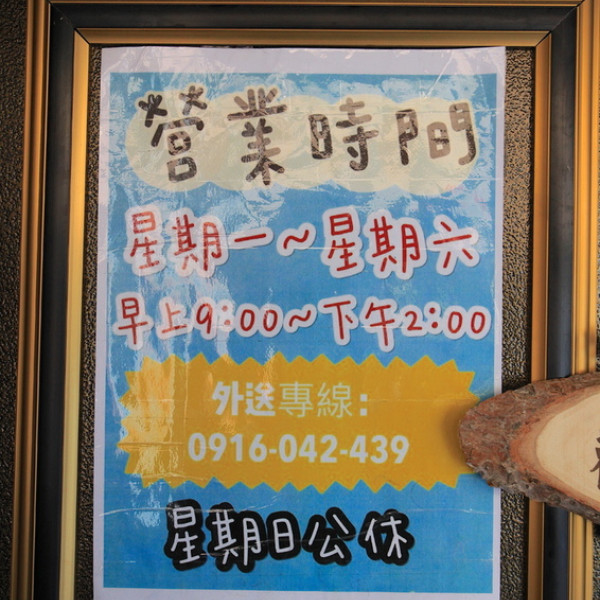 營業時間
星期一~星期六
早上9:00~下午2:00
外送專線:
0916-042-439
星期日公休